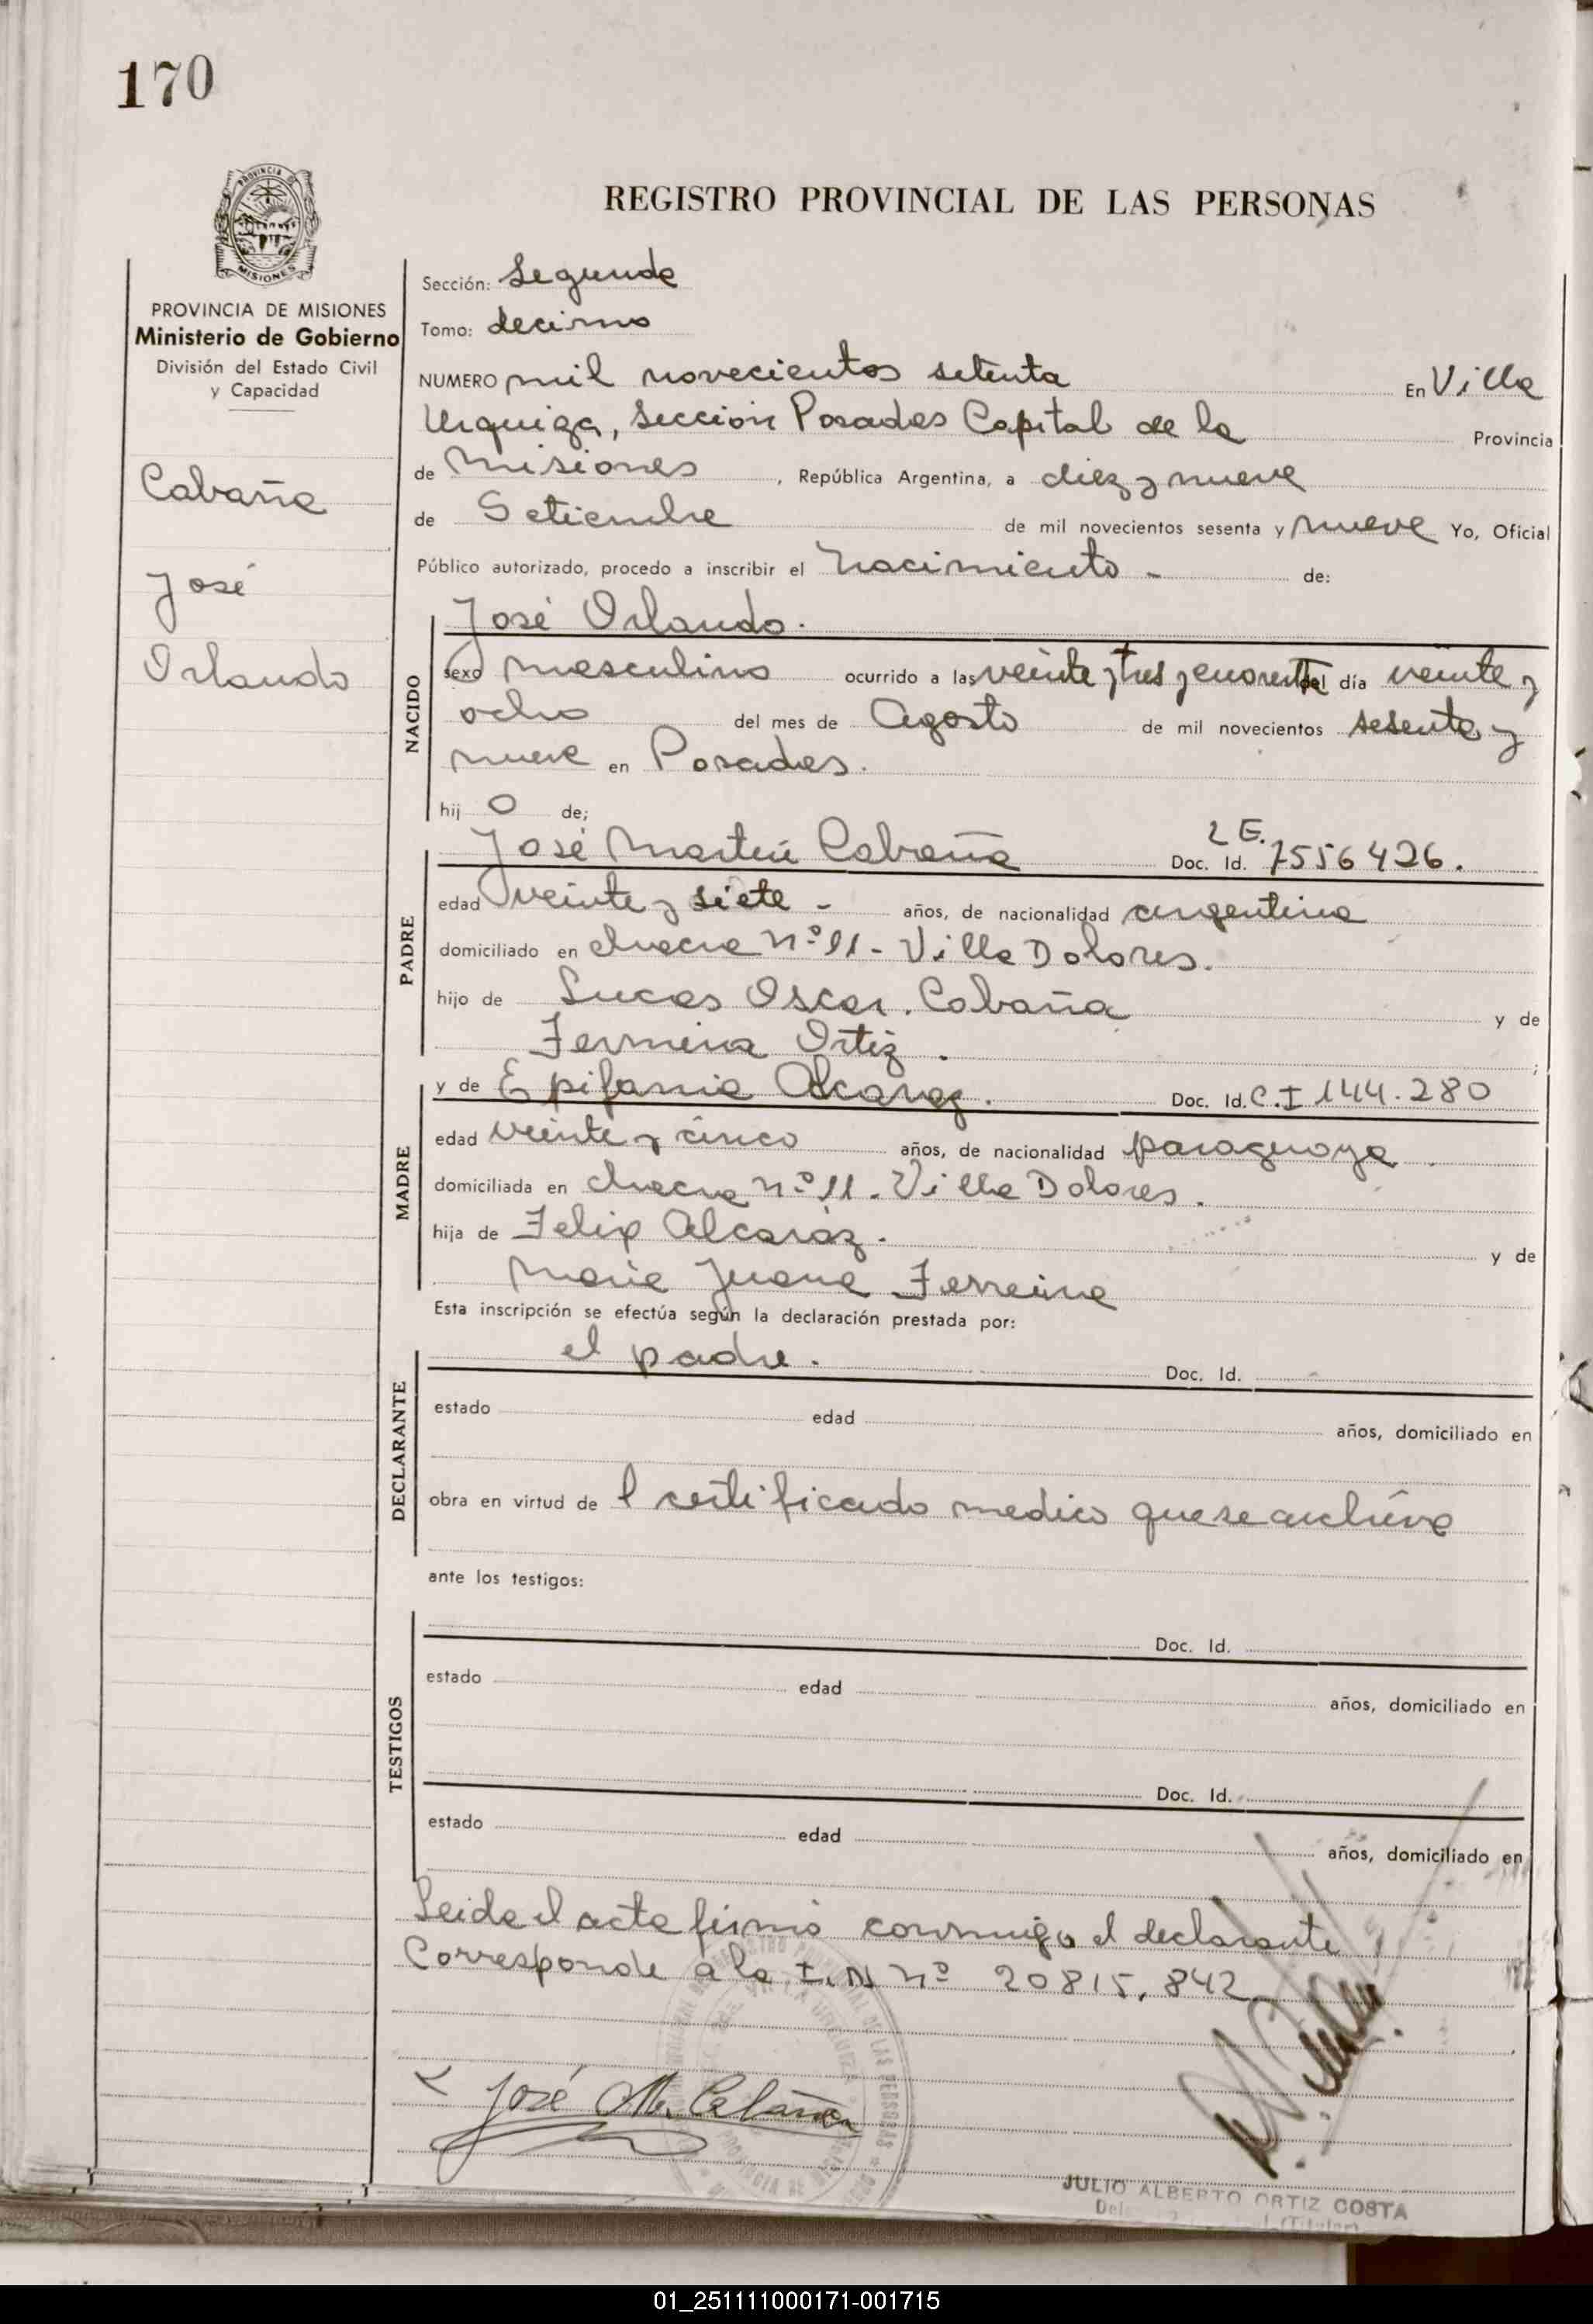 170
PROVINCIA DE
MISIONES
REGISTRO PROVINCIAL DE LAS PERSONAS
PROVINCIA DE MISIONES
Ministerio de Gobierno
División del Estado Civil
y Capacidad
Cabaña
José
Orlando
Sección: Segunda
Tomo: decimo
NUMERO mil novecientos setenta En Villa
Urquiza, Sección Posadas Capital de la Provincia
de Misiones, República Argentina, a diez y nueve
de Setiembre de mil novecientos sesenta y nueve Yo, Oficial
Público autorizado, procedo a inscribir el nacimiento - de:
NACIDO
José Orlando.
sexo masculino ocurrido a las veinte y tres y cuarenta del día veinte y
ocho del mes de Agosto de mil novecientos sesenta y
nueve en Posadas.
hij o de;
PADRE
José Martín Cabaña Doc. Id. L E. 7556426.
edad veinte y siete - años, de nacionalidad argentina
domiciliado en chacra nº 11 - Villa Dolores.
hijo de Lucas Oscar. Cabaña y de
Fermina Ortiz. ;
MADRE
y de Epifania Alcaraz. Doc. Id. C.I 144.280
edad veinte y cinco años, de nacionalidad paraguaya
domiciliada en chacra nº 11. Villa Dolores.
hija de Felix Alcaráz. y de
Maria Juana Ferreira
Esta inscripción se efectúa según la declaración prestada por:
DECLARANTE
el padre. Doc. Id.
estado edad años, domiciliado en
obra en virtud de l certificado medico que se archiva
ante los testigos:
TESTIGOS
Doc. Id.
estado edad años, domiciliado en
Doc. Id.
estado edad años, domiciliado en
Leida el acta firmó conmigo el declarante
Corresponde a la I.N nº 20815.842
José M. Cabaña
JULIO ALBERTO ORTIZ COSTA
(Titular)
01_251111000171-001715